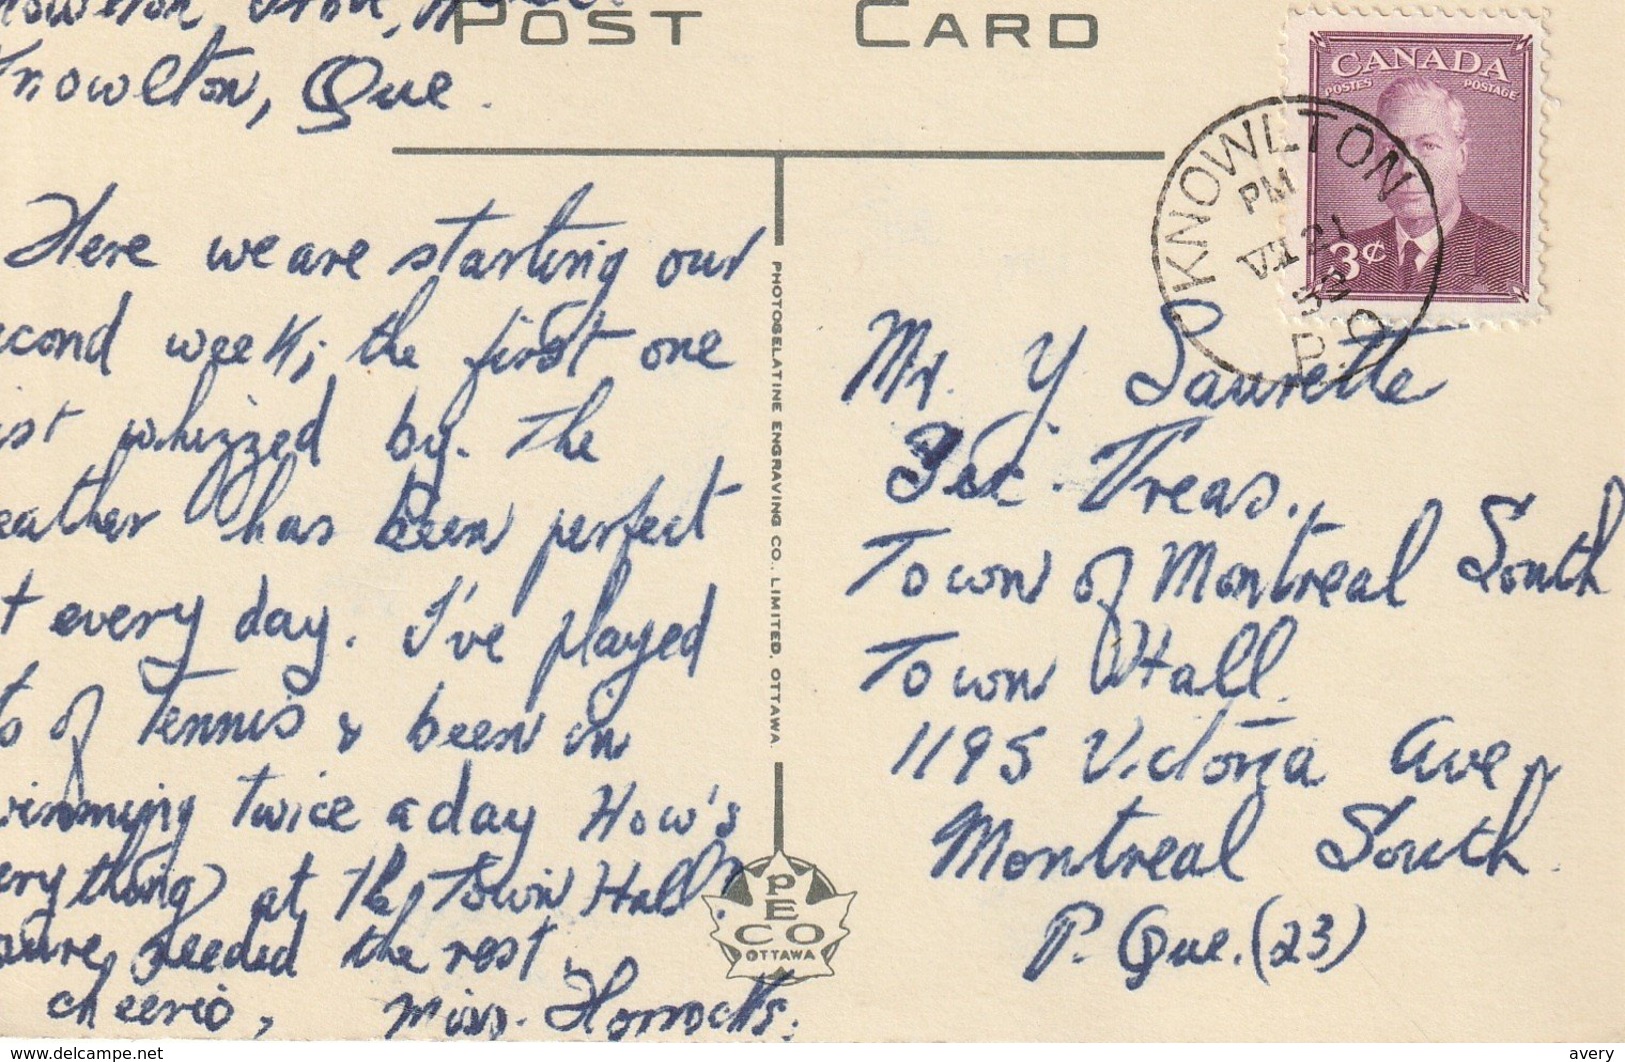 POST CARD
Knowlton, Que.
Here we are starting our
econd week, the first one
ist whizzed by. The
eather has been perfect
t every day. I've played
ts of Tennis & been in
wimming twice a day How's
erything at the Town Hall?
sure needed the rest.
cheerio, Miss.
CANADA
POSTES POSTAGE
3¢
KNOWLTON
PM
P.Q
Mr. Y. Laurette
Sec. Treas.
Town of Montreal South
Town Hall.
1195 Victoria Ave,
Montreal South.
P. Que. (23)
PHOTOGELATINE ENGRAVING CO., LIMITED, OTTAWA.
PECO
OTTAWA
http://www.delcampe.net
avery